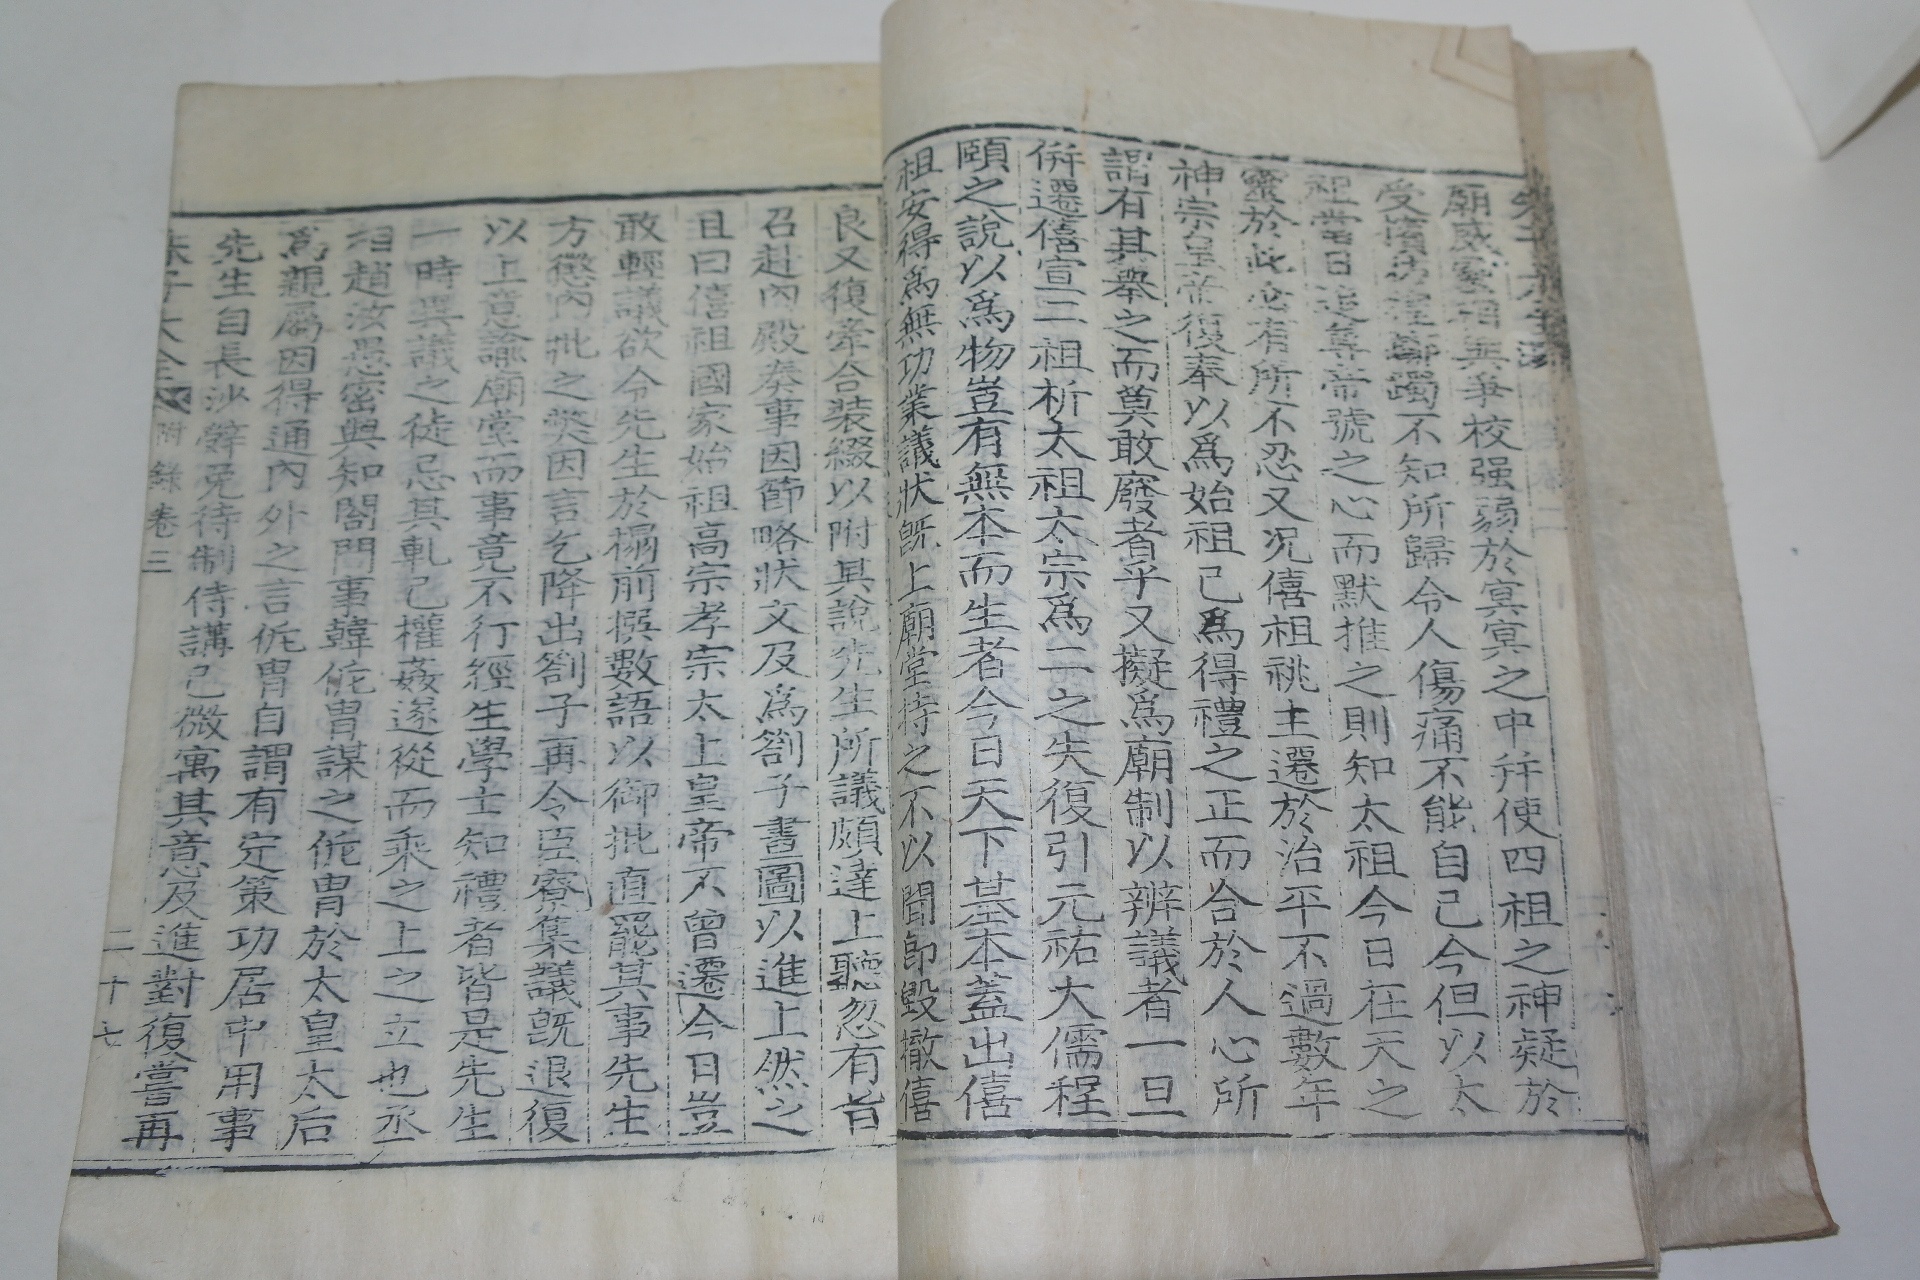 廟威靈相與爭校强弱於冥冥之中幷使四祖之神疑於
受擯彷徨躑躅不知所歸令人傷痛不能自已今但以太
祖當日追尊帝號之心而默推之則知太祖今日在天之
靈於此必有所不忍又况僖祖祧主遷於治平不過數年
神宗皇帝復奉以爲始祖已爲得禮之正而合於人心所
謂有其擧之而莫敢廢者乎又擬爲廟制以辨議者一旦
倂遷僖宣二祖析太祖太宗爲二之失復引元祐大儒程
頤之說以爲物豈有無本而生者今日天下基本蓋出僖
祖安得爲無功業議狀旣上廟堂持之不以聞卽毁撤僖
良又復牽合裝綴以附其說先生所議頗達上聽忽有旨
召赴內殿奏事因節略狀文及爲劄子畫圖以進上然之
且曰僖祖國家始祖高宗孝宗太上皇帝不曾遷今日豈
敢輕議欲令先生於榻前撰數語以御批直罷其事先生
方懲內批之獘因言乞降出劄子再令臣寮集議旣退復
以上意諭廟堂而事竟不行經生學士知禮者皆是先生
一時異議之徒忌其軋己權姦遂從而乘之上之立也丞
相趙汝愚密與知閤門事韓侂冑謀之侂冑於太皇太后
爲親屬因得通內外之言侂冑自謂有定策功居中用事
先生自長沙辭免待制侍講已微寓其意及進對復嘗再
朱子大全 附錄卷三 二十七